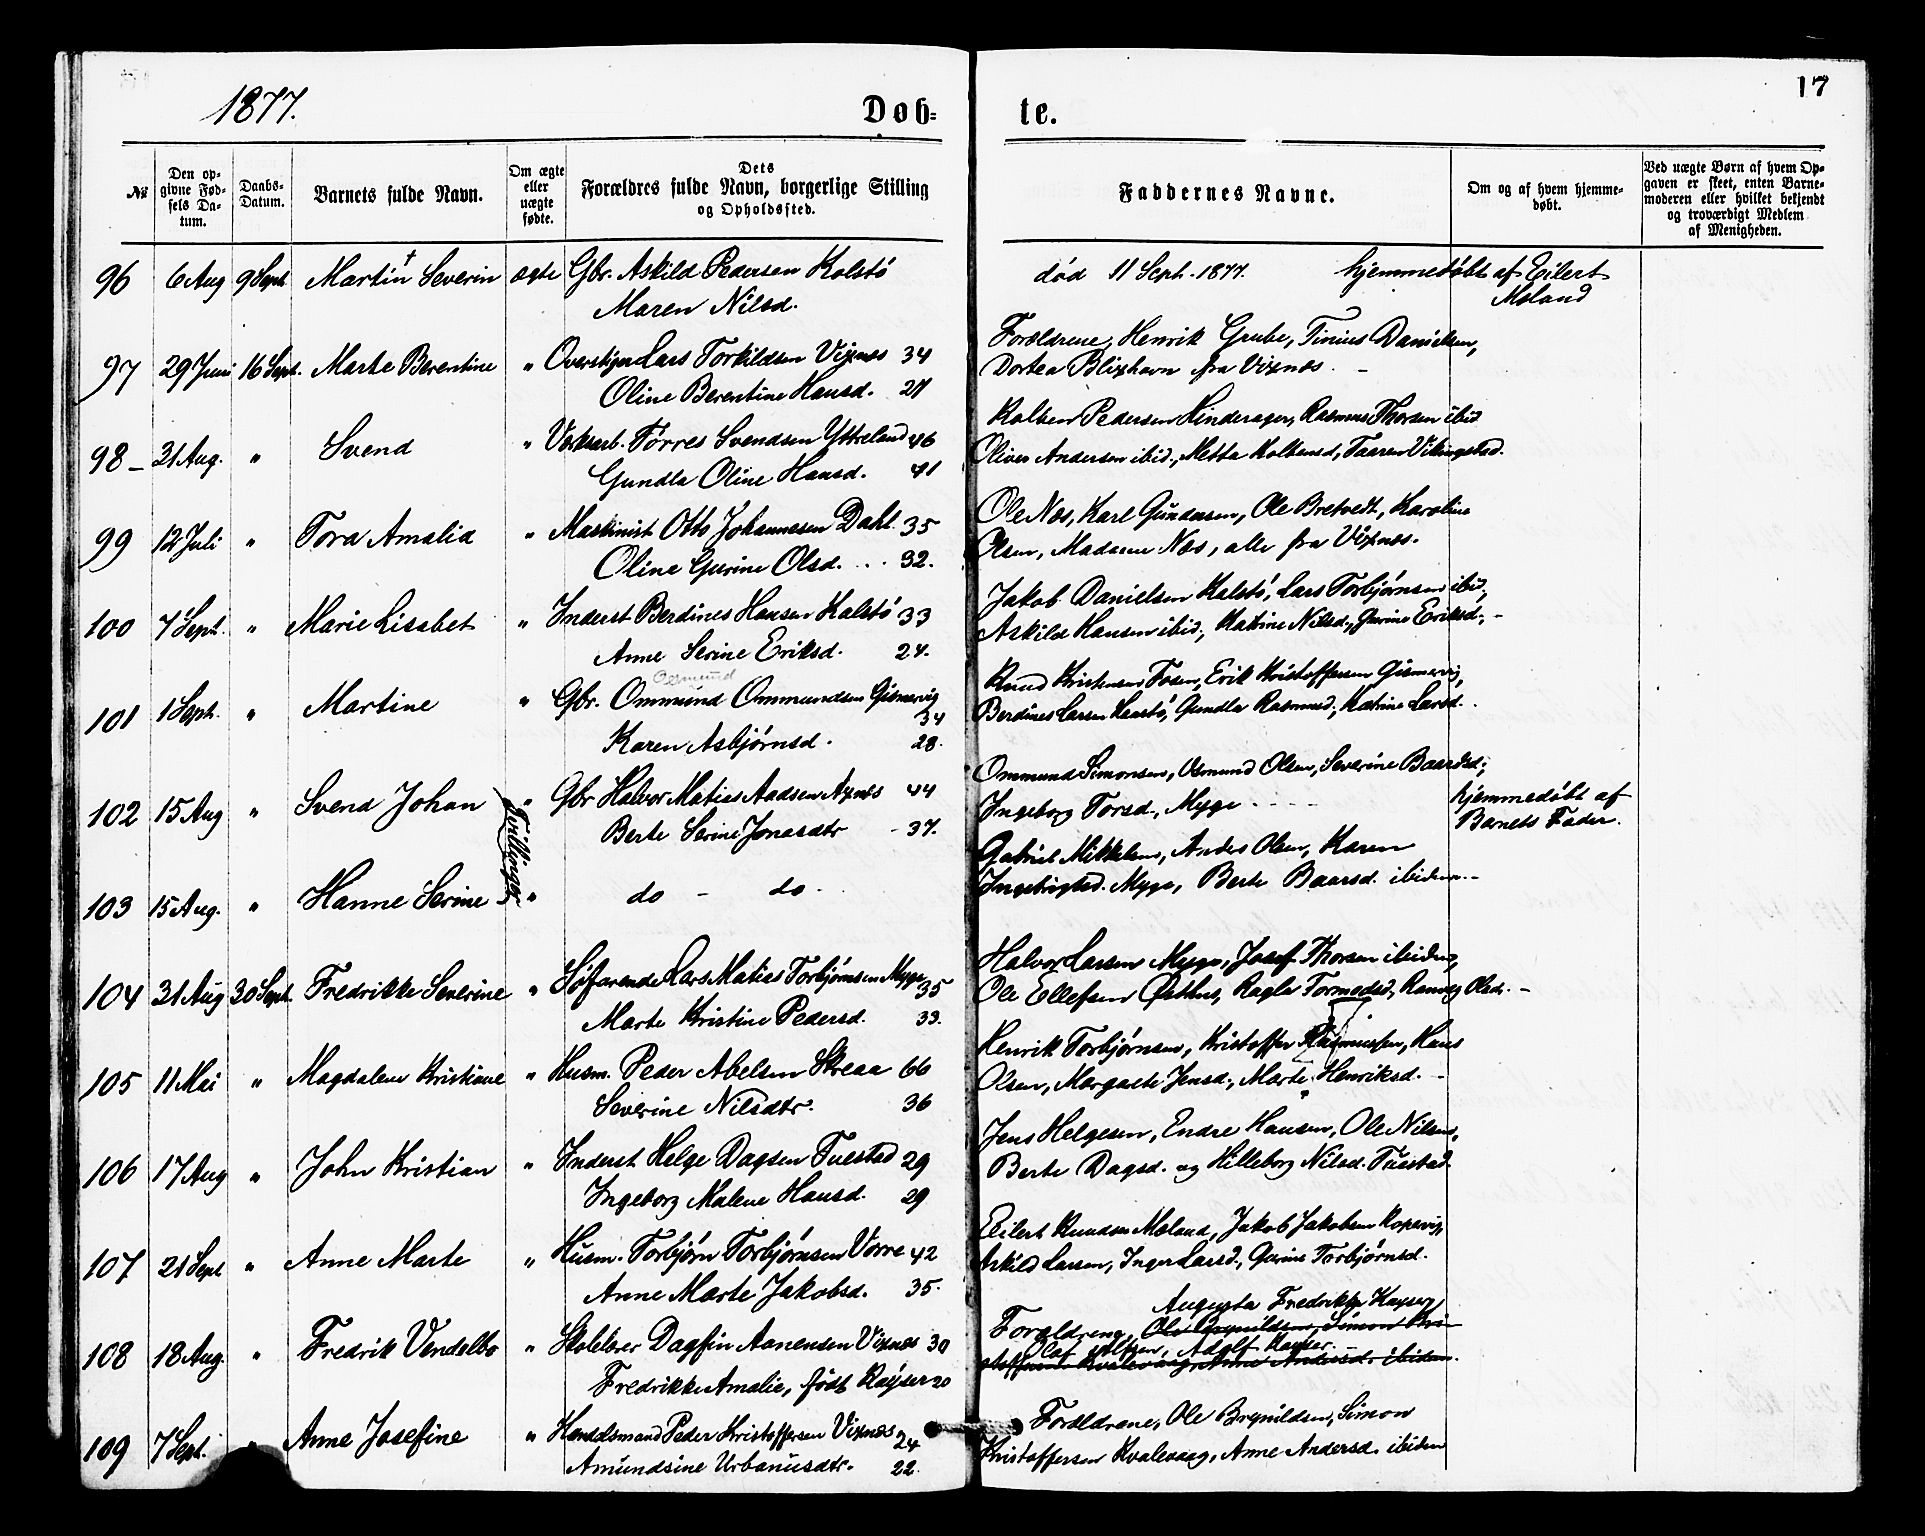 17
1877.
Døb= te.
№
Den opgivne Fødsels Datum.
Daabs-Datum.
Barnets fulde Navn.
Om ægte eller uægte fødte.
Dets Forældres fulde Navn, borgerlige Stilling og Opholdssted.
Faddernes Navne.
Om og af hvem hjemmedøbt.
Ved uægte Børn af hvem Opgaven er skeet, enten Barnemoderen eller hvilket bekjendt og troværdigt Medlem af Menigheden.
96 6 Aug 9 Sept Martin † Severin ægte Gbr. Askild Pedersen Kolstø død 11 Sept. 1877. hjemmedøbt af Eilert
Maren Nilsd. Moland
Forældrene, Henrik Grube, Tinius Danielsen,
97 29 Juni 16 Sept. Marte Berentine " Overstiger Lars Torkildsen Vixnes 34 Dortea Blixhavn fra Vixnæs.
Oline Berentine Hansd. 21
Kolben Pedersen Hinderager, Rasmus Thorsen ibid
98 – 31 Aug. " Svend " Værksarb. Tørres Svendsen Yttreland 46 Oliver Andersen ibid., Metta Kolbensd, Taaren Vikingstad.
Gundla Oline Hansd. 41
Ole Næs, Karl Gundersen, Ole Bretvedt, Karoline
99 12 Juli " Tora Amalia " Maskinist Otto Johannesen Dahl 35 Olsen, Madame Næs, alle fra Vixnæs.
Oline Gurine Olsd. 32.
Jakob Danielsen Kalstø, Lars Torbjørnsen ibid,
100 7 Sept. " Marie Lisabet " Inderst Berdines Hansen Kalstø 33 Askild Hansen ibid., Katrine Nilsd., Gurine Eriksd.,
Anne Serine Eriksd. 24.
Osmund
Knud Kristensen Fosen, Erik Kristoffersen Gismervig,
101 1 Sept. " Martine " Gbr. Ommund Ommundsen Gismervig 34 Berdines Larsen Haastø, Gundla Rasmusd., Katrine Larsd.
Karen Asbjørnsd. 28.
Ommund Simonsen, Osmund Olsen, Severine Baardsd.,
102 15 Aug " Svend Johan " Gbr Halvor Matias Aadsen Axnes 44 Ingeborg Torsd., Myge hjemmedøbt af
Berte Serine Jonasdtr 37. Barnets Fader.
Tvillinger
Gabriel Mikkelsen, Andes Olsen, Karen
103 15 Aug. " Hanne Serine " do – do. Ingebrigtsd. Myge, Berte Baarsd. ibidem
Halvor Larsen Myge, Josef Thorsen ibidem,
104 31 Aug 30 Sept. Fredrikke Severine " Søfarende Lars Matias Torbjørnsen Myge 35 Ole Ellefsen Østhus, Ragla Tormodsd, Ranveg Olsdr.
Marte Kristine Pedersd. 33.
Henrik Torbjørnsen, Kristoffer Rasmussen, Hans
105 11 Mai " Magdalene Kristiane " Husm. Peder Abelsen Skreaa 66 Olsen, Margaete Jensd., Marte Henriksd.
Severine Nilsdtr. 36
Jens Helgesen, Endre Hansen, Ole Nilsen,
106 17 Aug " John Kristian " Inderst Helge Dagsen Tuestad 29 Berte Dagsd. og Hilleborg Nilsd. Tuestad.
Ingeborg Malene Hansd. 29
Eilert Knudsen Moland, Jakob Jakobsen Kopervig,
107 21 Sept " Anne Marte " Husm. Torbjørn Torbjørnsen Vorre 42 Askild Larsen, Inger Larsd., Gurine Torbjørnsd.
Anne Marte Jakobsd. 35.
Augusta Fredrikke Kayser,
Forældrene, Ole Brynildsen, Simon Kri-
108 18 Aug. " Fredrik Vendelbo " Skolelærer Dagfin Aanensen Vixnæs 30 Olaf Olsen, Adolf Kayser.
stoffersen Kvalevaag, Anne Andersd. ibidem.
Fredrikke Amalie, født Kayser 20
Forældrene, Ole Brynildsen, Simon
109 7 Sept. " Anne Josefine " Handelsmand Peder Kristoffersen Vixnæs 24 Kristoffersen Kvalevaag, Anne Andersd. ibidem
Amundsine Urbanusdtr. 22.